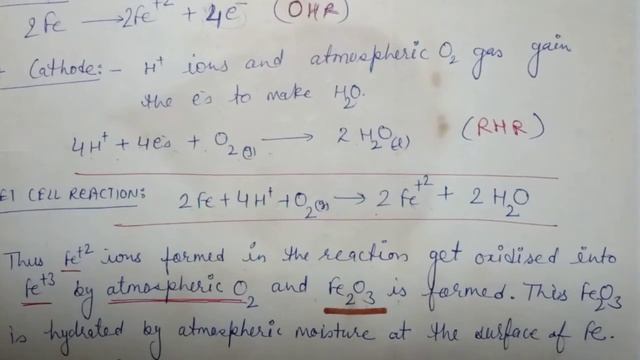 2Fe ⟶ 2Fe⁺² + 4e⁻ (OHR)
Cathode:- H⁺ ions and atmospheric O₂ gas gain
the e's to make H₂O.
4H⁺ + 4e's + O₂(g) ⟶ 2H₂O(l) (RHR)
ET CELL REACTION: 2Fe + 4H⁺ + O₂(g) ⟶ 2Fe⁺² + 2H₂O
Thus Fe⁺² ions formed in the reaction get oxidised into
Fe⁺³ by atmospheric O₂ and Fe₂O₃ is formed. This Fe₂O₃
is hydrated by atmospheric moisture at the surface of Fe.